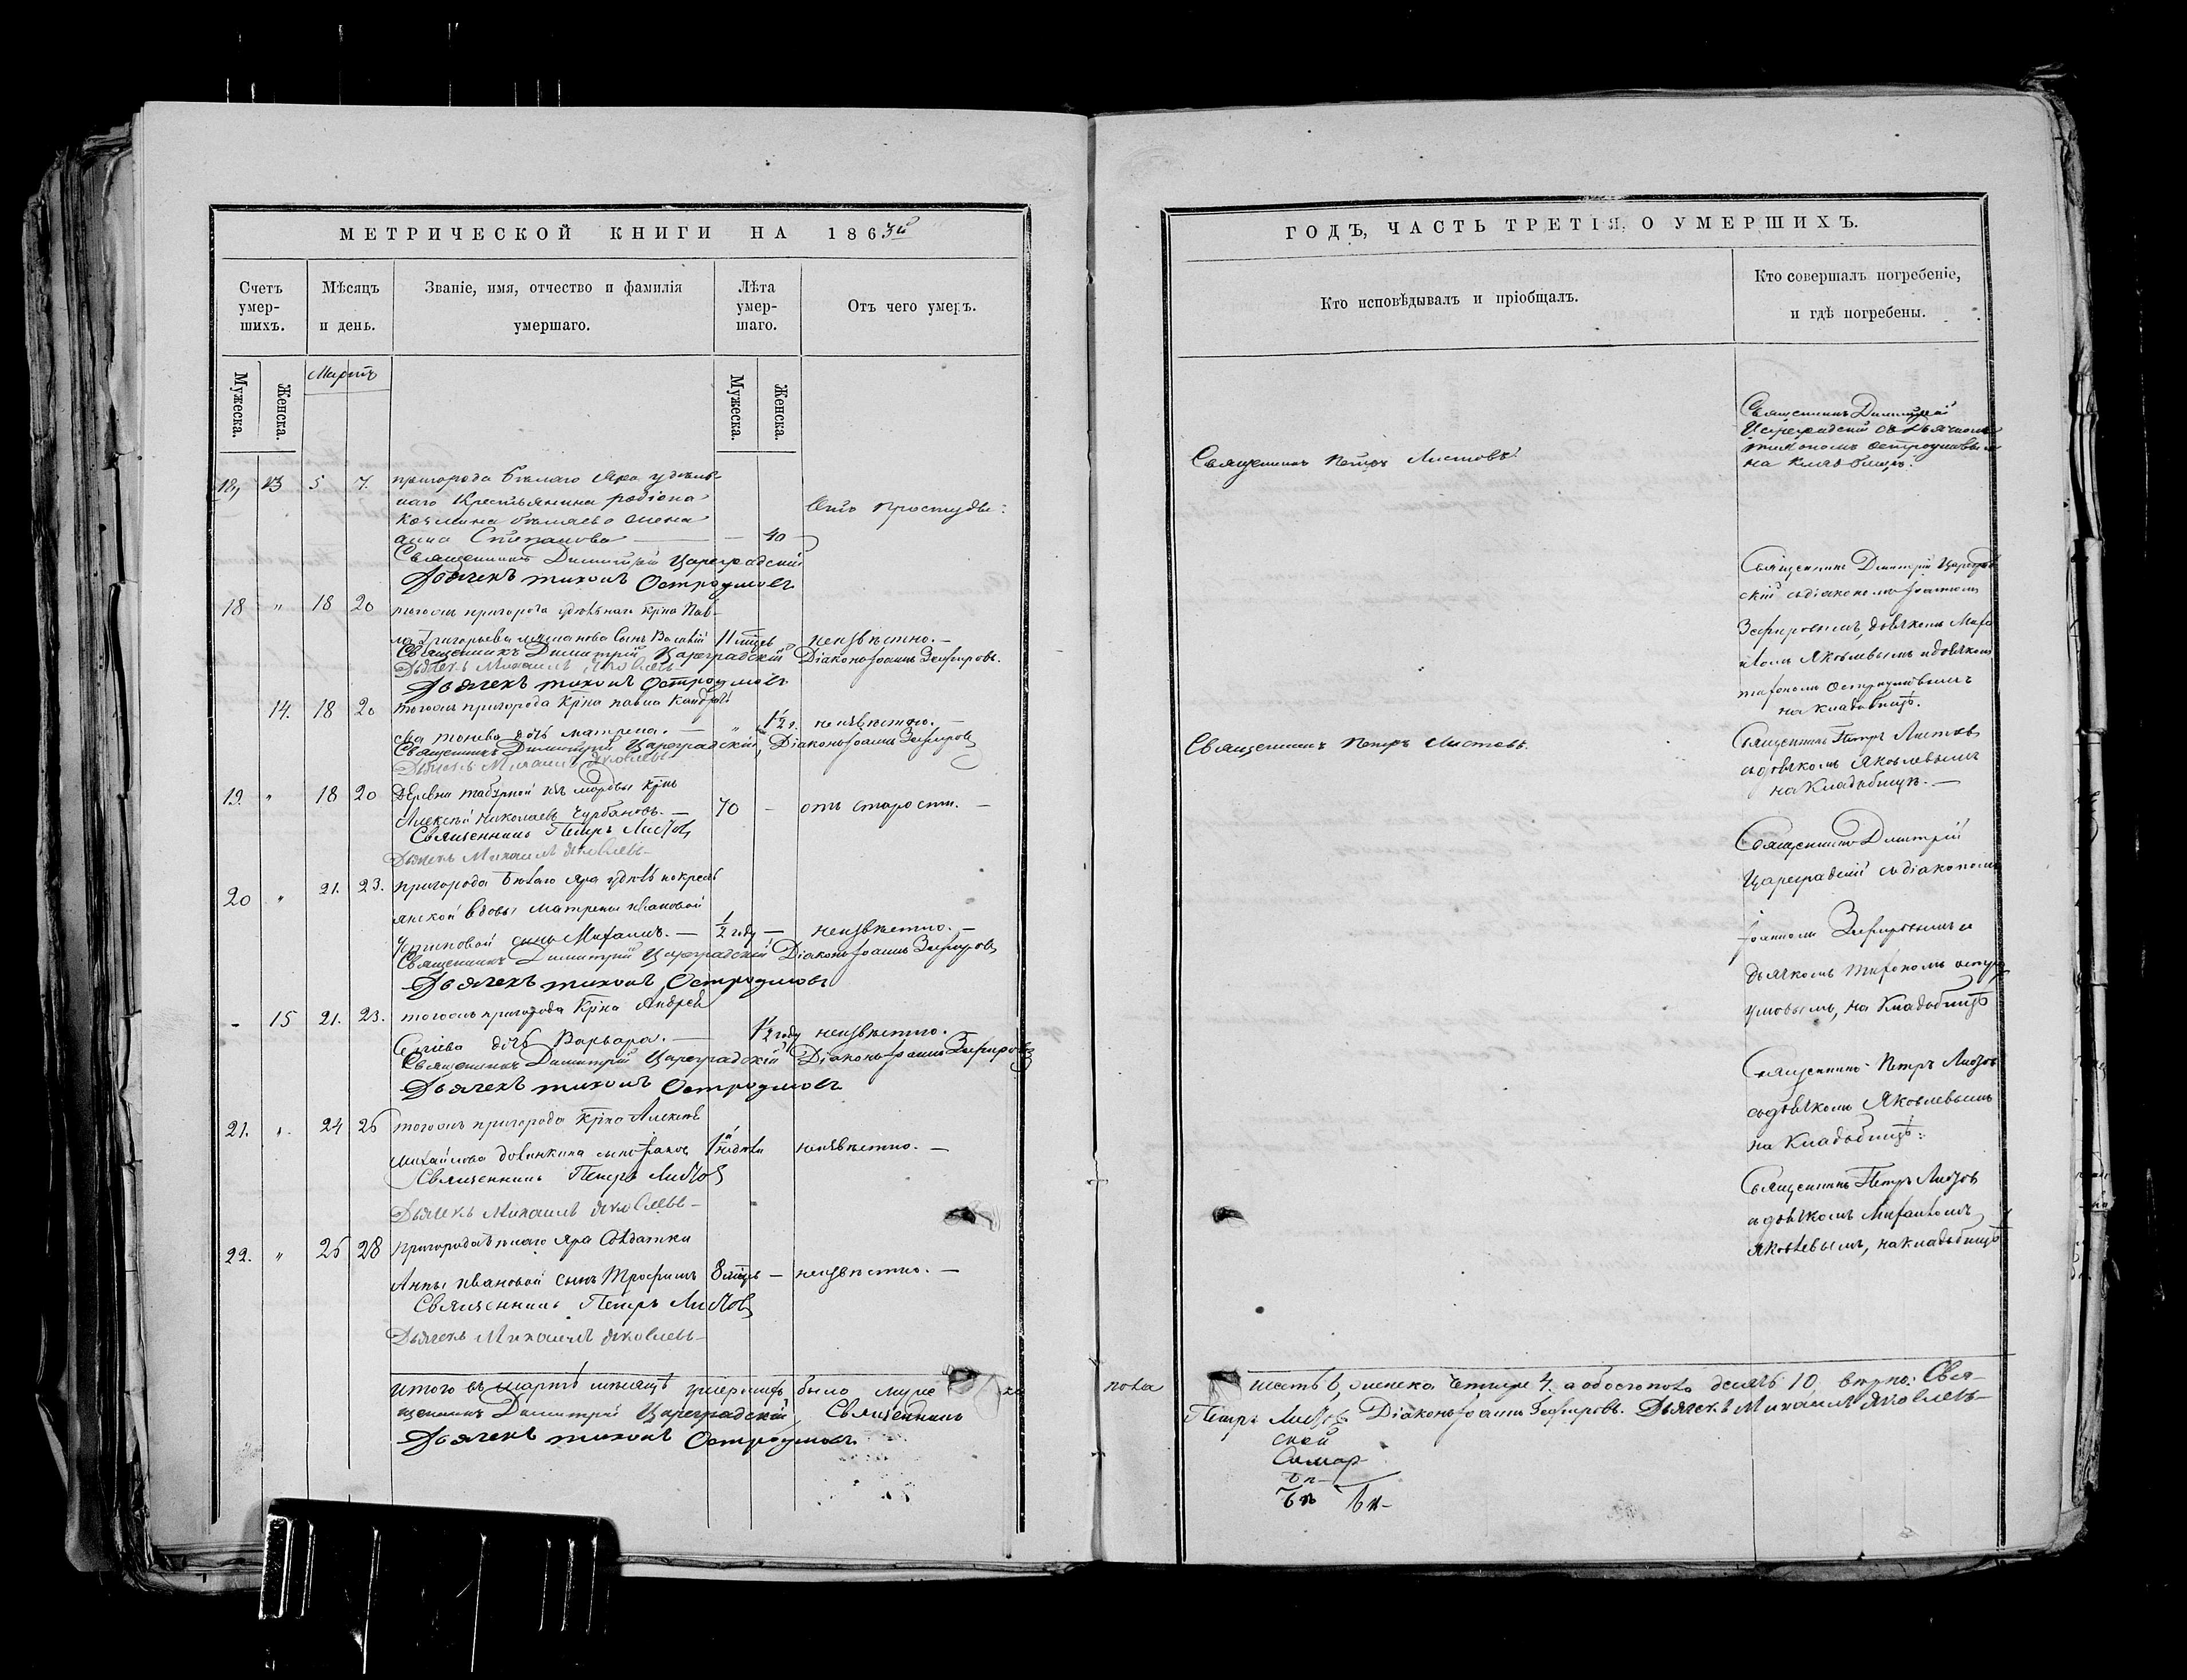 МЕТРИЧЕСКОЙ КНИГИ НА 1863й
Счетъ умер-шихъ.
Мѣсяцъ и день.
Званіе, имя, отчество и фамилія умершаго.
Лѣта умер-шаго.
Отъ чего умеръ.
Мужеска.
Женска.
Мартъ
Мужеска.
Женска.
13 5 7. пригорода Бѣлаго Яра удѣль
наго Крестьянина родіона
Козмина бѣляева жена
Отъ простуды:
анна Степанова — 40
Священникъ Димитрій Цареградскій
Дьячекъ тихонъ Остроумовъ
18 " 18 20 тогожъ пригорода удѣльнаго крⷭ҇на Пав-
ла Григорьева сынъ Василій 11 мцевъ неизвѣстно. —
Священникъ Димитрій Цареградскій Діаконъ Іоаннъ Зефировъ.
Дьячекъ Михаилъ Яковлевъ
Дьячекъ тихонъ Остроумовъ
14. 18 20 тогожъ пригорода крⷭ҇на павла Кондрать
ева дочь матрена. — " 1½ г. неизвѣстно. —
Священникъ Димитрій Цареградскій, Діаконъ Іоаннъ Зефировъ
Дьячекъ Михаилъ Яковлевъ
19. " 18 20 Деревни табурной изъ мордвы крⷭ҇нъ
Алексѣй Николаевъ Чурбановъ. — 70 — отъ старости. —
Священникъ Петръ Листовъ
Дьячекъ Михаилъ Яковлевъ —
20 " 21. 23. пригорода Бѣлаго Яра удѣльно крестъ
янской вдовы Матрены ивановой
сынъ Михаилъ. — ½ году — неизвѣстно. —
Священникъ Димитрій Цареградскій Діаконъ Іоаннъ Зефировъ
Дьячекъ тихонъ Остроумовъ
- 15 21. 23. тогожъ пригорода крⷭ҇на Андрея
дочь Варвара. — 1½ году неизвѣстно.
Священникъ Димитрій Цареградскій Діаконъ Іоаннъ Зефировъ
Дьячекъ тихонъ Остроумовъ
21. " 24 26 тогожъ пригорода крⷭ҇на Алексѣя
Михайлова сынъ неизвѣстно. —
Священникъ Петръ Листовъ
Дьячекъ Михаилъ Яковлевъ —
22. " 26 28 пригорода бѣлаго Яра Солдатки
Анны Ивановой сынъ Трофимъ 8 мцевъ — неизвѣстно. —
Священникъ Петръ Листовъ
Дьячекъ Михаилъ Яковлевъ —
Итого въ мартѣ мѣсяцѣ умершихъ было муже
щенникъ Димитрій Цареградскій, Священникъ
Дьячекъ тихонъ Остроумовъ
ГОДЪ, ЧАСТЬ ТРЕТІЯ, О УМЕРШИХЪ.
Кто исповѣдывалъ и пріобщалъ.
Кто совершалъ погребеніе, и гдѣ погребены.
Священникъ Петръ Листовъ.
Священникъ Димитрій
Цареградскій съ дьячкомъ
тихономъ остроумовымъ
на кладбищѣ.
Священникъ Димитрій Цареград
скій съ діакономъ Іоанномъ
Зефировымъ, дьячкомъ Миха
иломъ Яковлевымъ и дьячкомъ
тихономъ Остроумовымъ
на кладбищѣ.
Священникъ Петръ Листовъ.
Священникъ Петръ Листовъ
съ дьячкомъ Яковлевымъ
на Кладбищѣ. —
Священникъ Димитрій
Цареградскій съ діакономъ
Іоанномъ Зефировымъ и
дьячкомъ тихономъ остро
умовымъ, на Кладбищѣ
Священникъ Петръ Листовъ
съ дьячкомъ Яковлевымъ
на Кладбищѣ.
Священникъ Петръ Листовъ
съ дьячкомъ Михаиломъ
Яковлевымъ, на кладбищѣ
пола шесть 6, женска четыре 4. а обоего пола десять 10 Свя-
Петръ Листовъ Діаконъ Іоаннъ Зефировъ. Дьячекъ Михаилъ Яковлевъ —